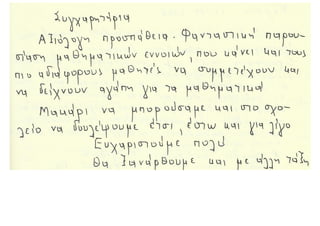 Συγχαρητήρια
Αξιόλογη προσπάθεια. Φανταστική παρου-
σίαση μαθηματικών εννοιών, που κάνει και τους
πιο αδιάφορους μαθητές να συμμετέχουν και
να δείχνουν αγάπη για τα μαθηματικά!
Μακάρι να μπορούσαμε και στο σχο-
λείο να δουλέψουμε έτσι, έστω και για λίγο
Ευχαριστούμε πολύ
Θα ξανάρθουμε και με άλλη τάξη